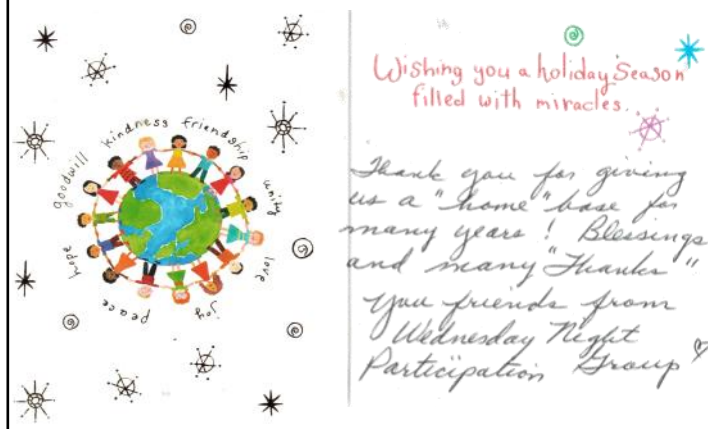 goodwill kindness friendship unity love joy peace hope
Wishing you a holiday season
filled with miracles..
Thank you for giving
us a "home" base for
many years! Blessings
and many "Thanks"
you friends from
Wednesday Night
Participation Group